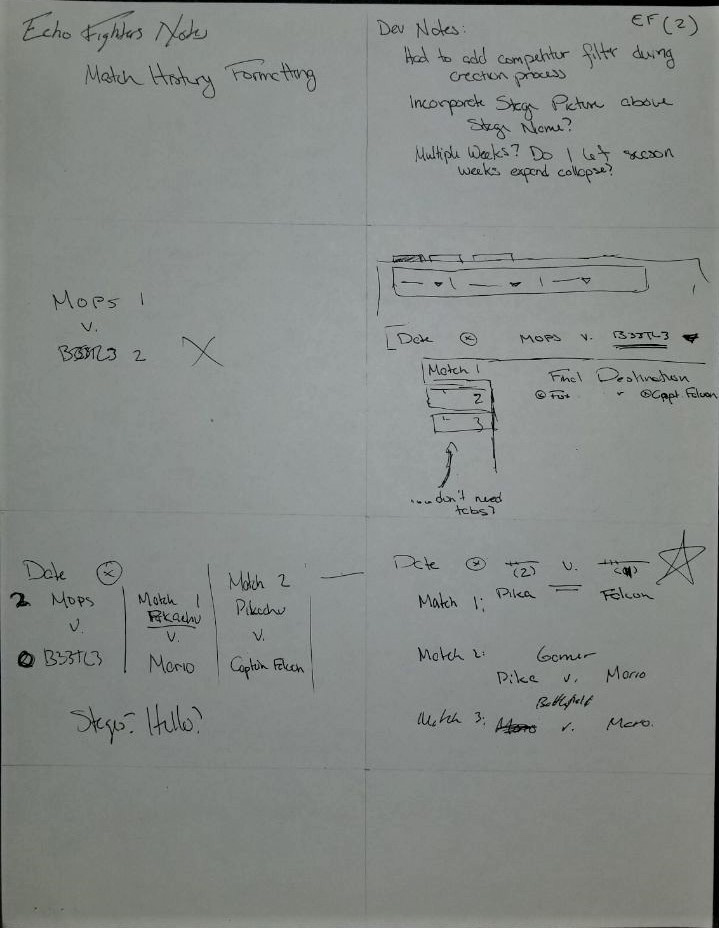 Echo Fighters Notes
Match History Formatting
EF (2)
Dev Notes:
Had to add competitor filter during
creation process
Incorporate Stage Picture above
Stage Name?
Multiple Weeks? Do I let season
weeks expand collapse?
MOPS 1
v.
B33TL3 2
Date MOPS v. B33TL3
Match 1
2
3
Final Destination
Fox v Capt. Falcon
.... don't need
tabs?
Date
2 MOPS
v.
0 B33TL3
Match 1
Pikachu
v.
Mario
Match 2
Pikachu
v.
Captain Falcon
Stages? Hello?
Date (2) v.
Match 1: Pika Falcon
Match 2:
Pika v. Mario
Battlefield
Match 3: v. Mario.